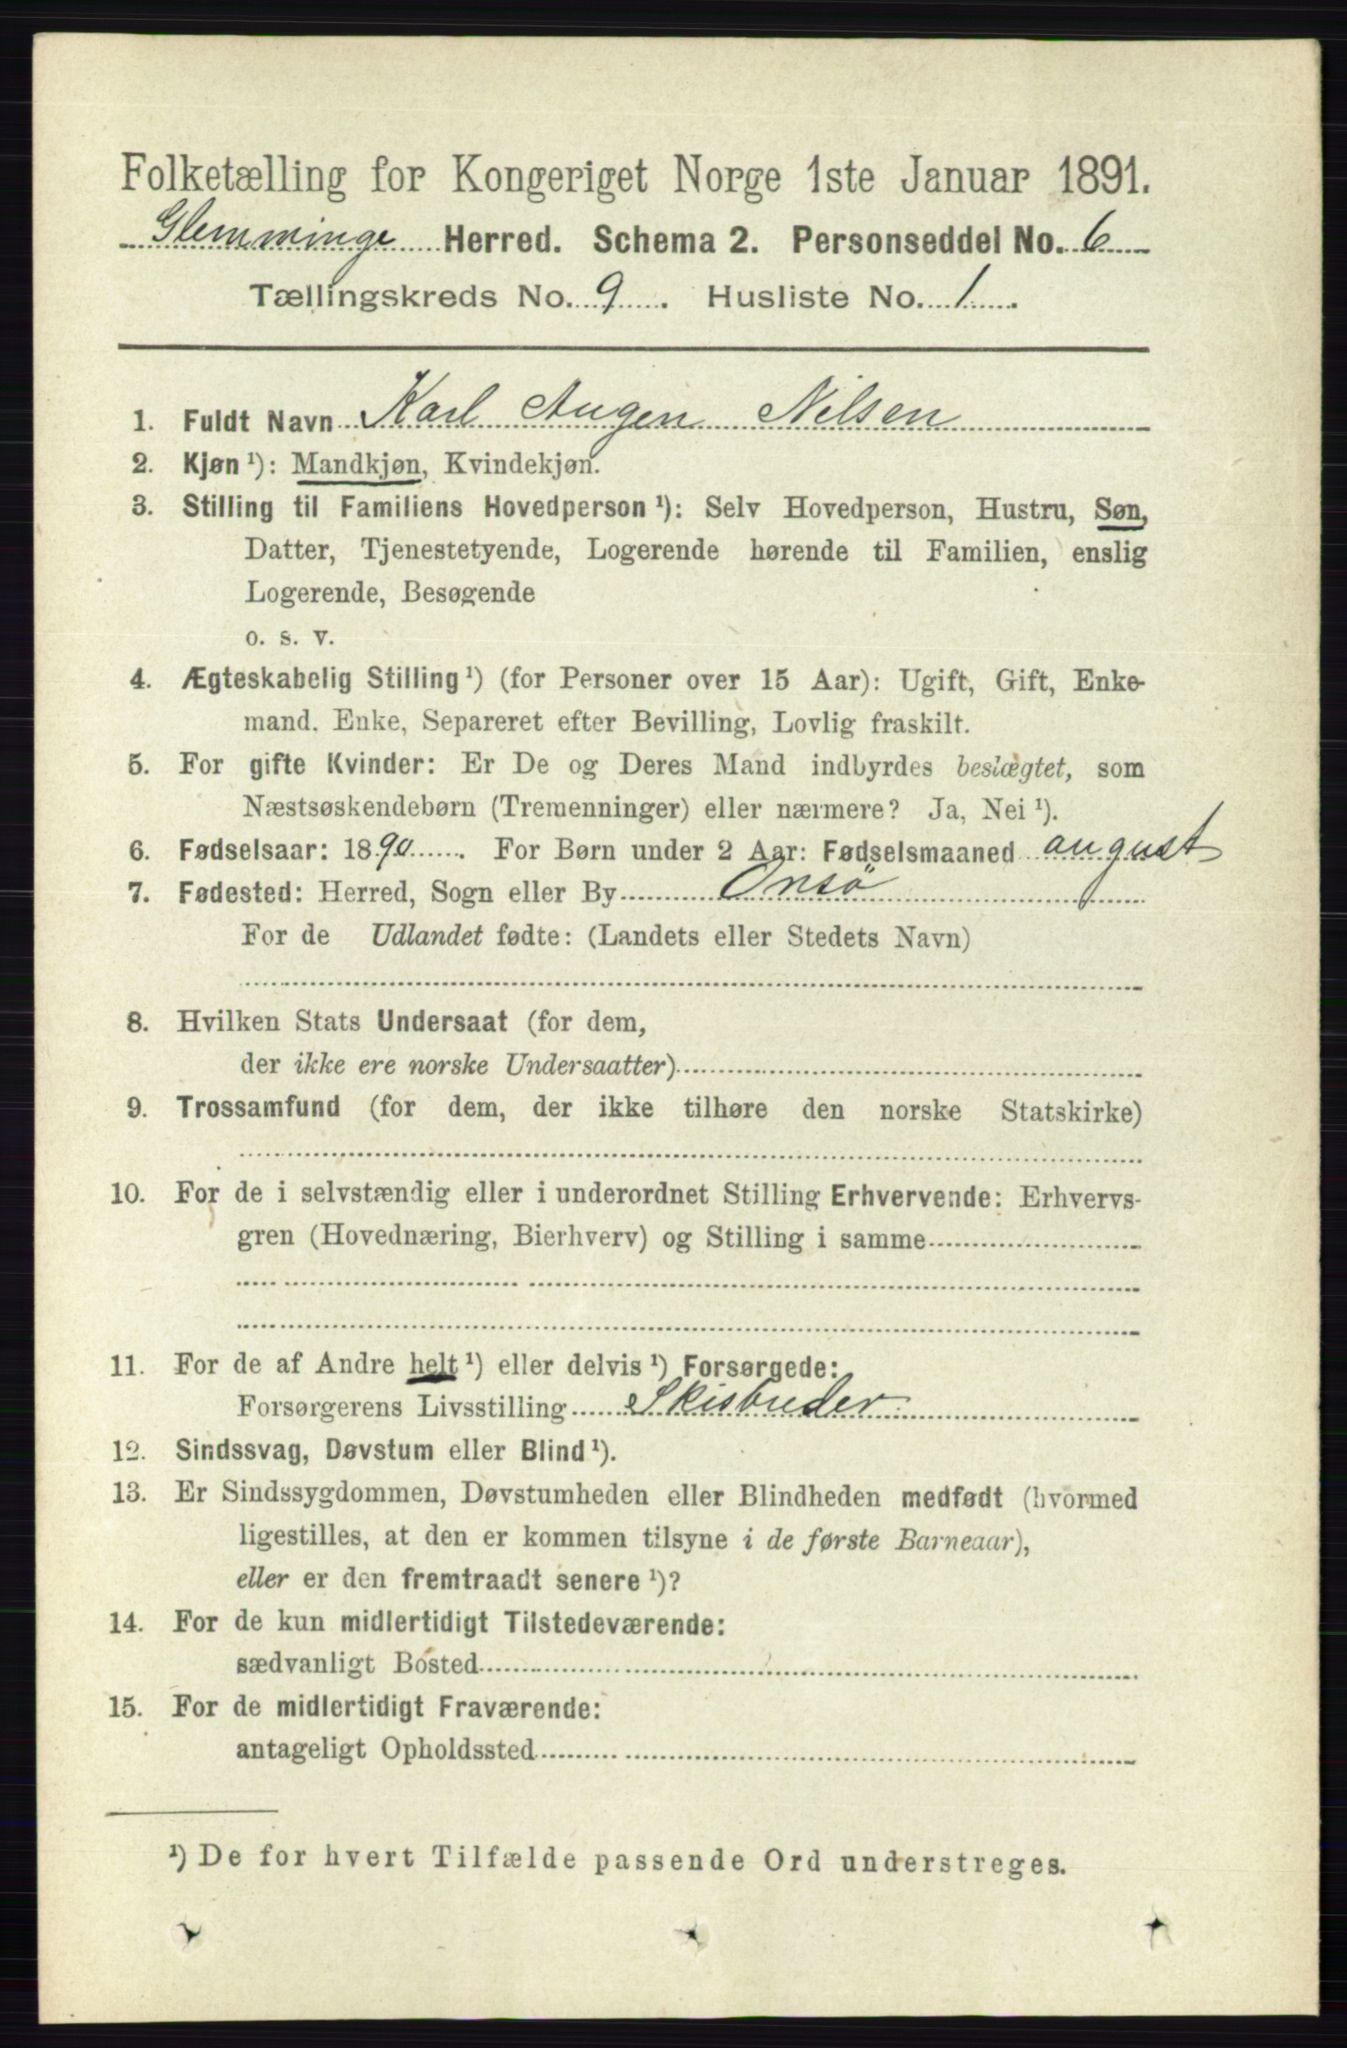 Folketælling for Kongeriget Norge 1ste Januar 1891.
Glemminge Herred. Schema 2. Personseddel No. 6
Tællingskreds No. 9. Husliste No. 1.
1. Fuldt Navn Karl Augen Nilsen
2. Kjøn ¹): Mandkjøn, Kvindekjøn.
3. Stilling til Familiens Hovedperson ¹): Selv Hovedperson, Hustru, Søn,
Datter, Tjenestetyende, Logerende hørende til Familien, enslig
Logerende, Besøgende
o. s. v.
4. Ægteskabelig Stilling ¹) (for Personer over 15 Aar): Ugift, Gift, Enke-
mand. Enke, Separeret efter Bevilling, Lovlig fraskilt.
5. For gifte Kvinder: Er De og Deres Mand indbyrdes beslægtet, som
Næstsøskendebørn (Tremenninger) eller nærmere? Ja, Nei ¹).
6. Fødselsaar: 1890. For Børn under 2 Aar: Fødselsmaaned august
7. Fødested: Herred, Sogn eller By Onsö
For de Udlandet fødte: (Landets eller Stedets Navn)
8. Hvilken Stats Undersaat (for dem,
der ikke ere norske Undersaatter)
9. Trossamfund (for dem, der ikke tilhøre den norske Statskirke)
10. For de i selvstændig eller i underordnet Stilling Erhvervende: Erhvervs-
gren (Hovednæring, Bierhverv) og Stilling i samme
11. For de af Andre helt ¹) eller delvis ¹) Forsørgede:
Forsørgerens Livsstilling Skisbruder
12. Sindssvag, Døvstum eller Blind ¹).
13. Er Sindssygdommen, Døvstumheden eller Blindheden medfødt (hvormed
ligestilles, at den er kommen tilsyne i de første Barneaar),
eller er den fremtraadt senere ¹)?
14. For de kun midlertidigt Tilstedeværende:
sædvanligt Bosted
15. For de midlertidigt Fraværende:
antageligt Opholdssted
¹) De for hvert Tilfælde passende Ord understreges.